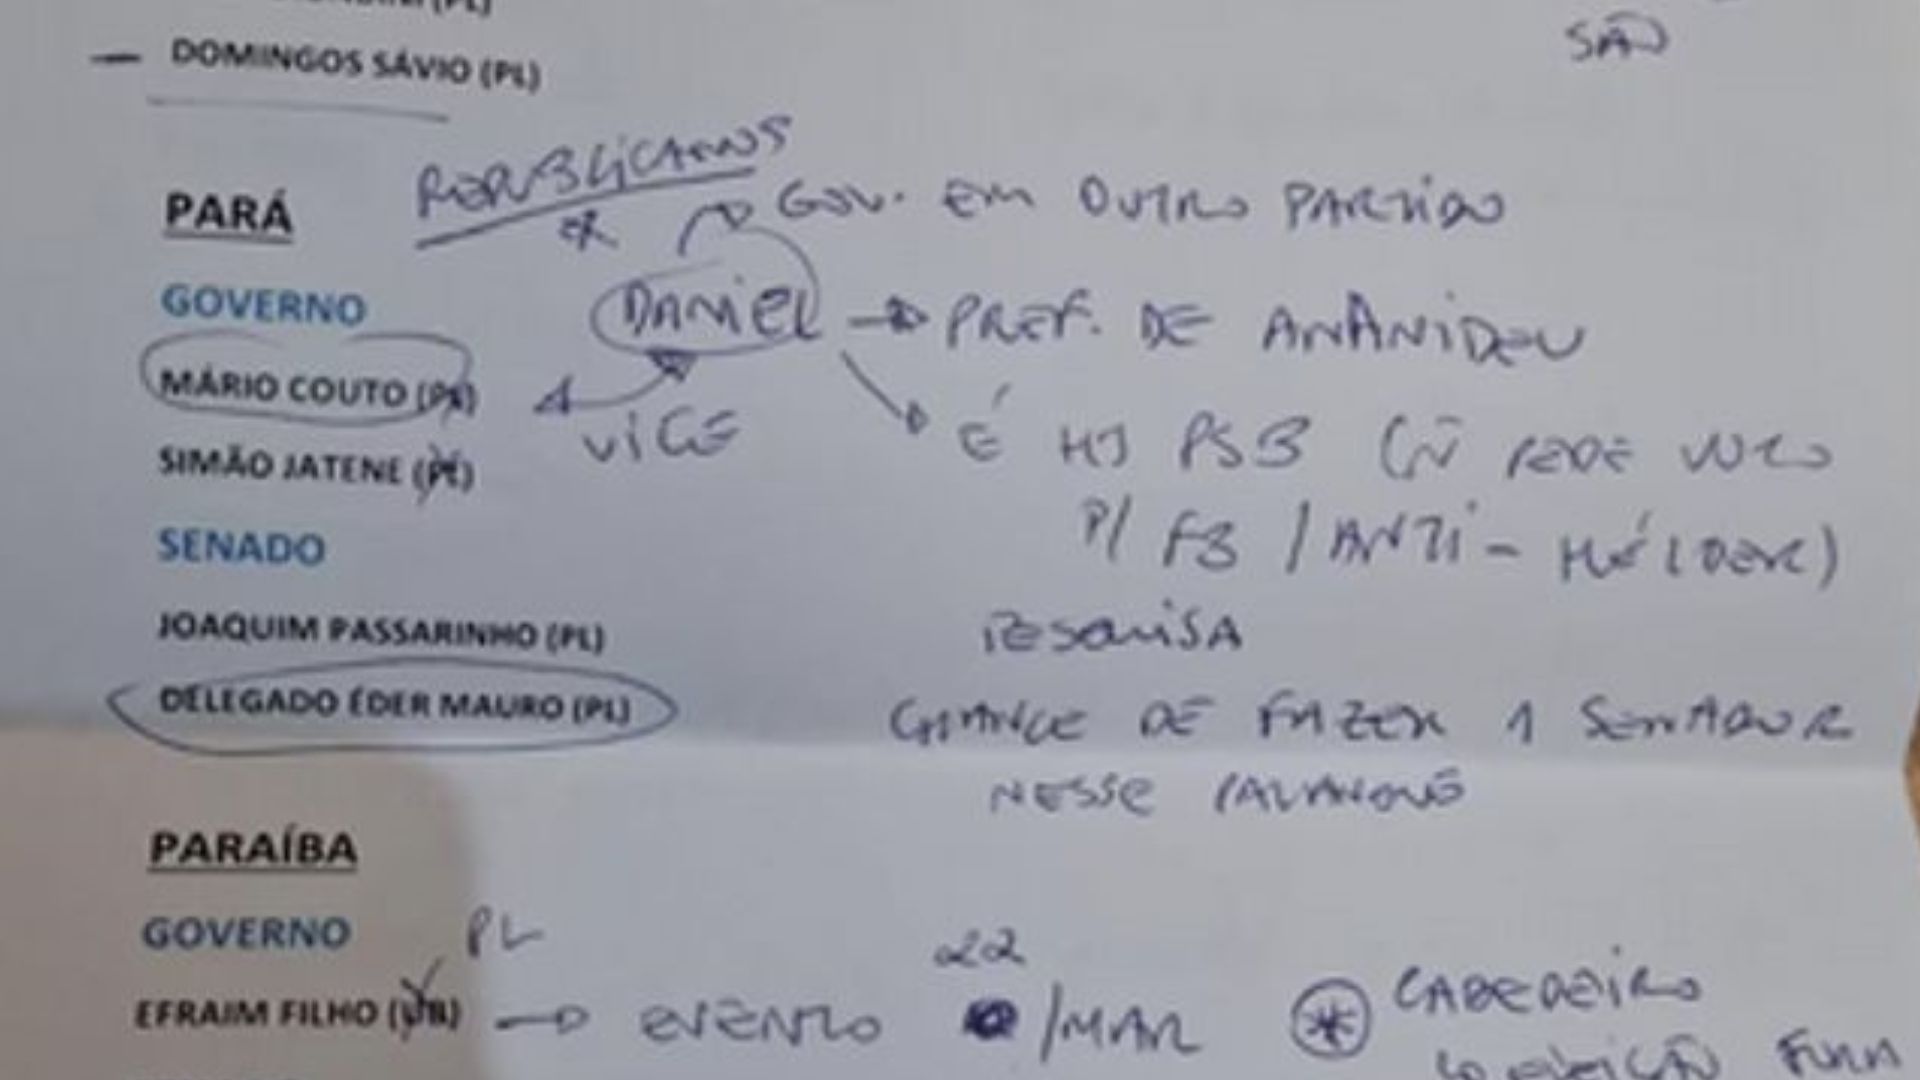 DOMINGOS SÁVIO (PL)
SÃO
REPUBLICANOS
PARÁ
GOV. EM OUTRO PARTIDO
GOVERNO
DANIEL → PREF. DE ANANIDEU
MÁRIO COUTO (PL)
VICE
É HJ PSB (Ñ PEDE VOTO
SIMÃO JATENE (PL)
P/ FB / ANTI-HÉLDER)
SENADO
JOAQUIM PASSARINHO (PL)
PESQUISA
DELEGADO ÉDER MAURO (PL)
CHANCE DE FAZER 1 SENADOR
NESSE PALANQUE
PARAÍBA
GOVERNO
PL
22
EFRAIM FILHO (UB) → EVENTO /MAR
CABEDEIRO
ELEIÇÃO FORA